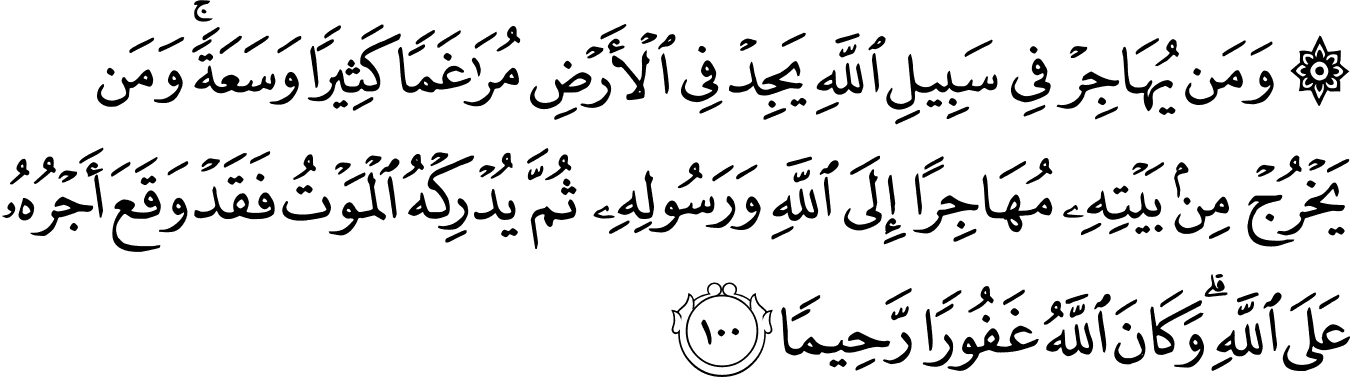 ۞ وَمَن يُهَاجِرۡ فِي سَبِيلِ ٱللَّهِ يَجِدۡ فِي ٱلۡأَرۡضِ مُرَٰغَمٗا كَثِيرٗا وَسَعَةٗۚ وَمَن
يَخۡرُجۡ مِنۢ بَيۡتِهِۦ مُهَاجِرًا إِلَى ٱللَّهِ وَرَسُولِهِۦ ثُمَّ يُدۡرِكۡهُ ٱلۡمَوۡتُ فَقَدۡ وَقَعَ أَجۡرُهُۥ
عَلَى ٱللَّهِۗ وَكَانَ ٱللَّهُ غَفُورٗا رَّحِيمٗا ١٠٠